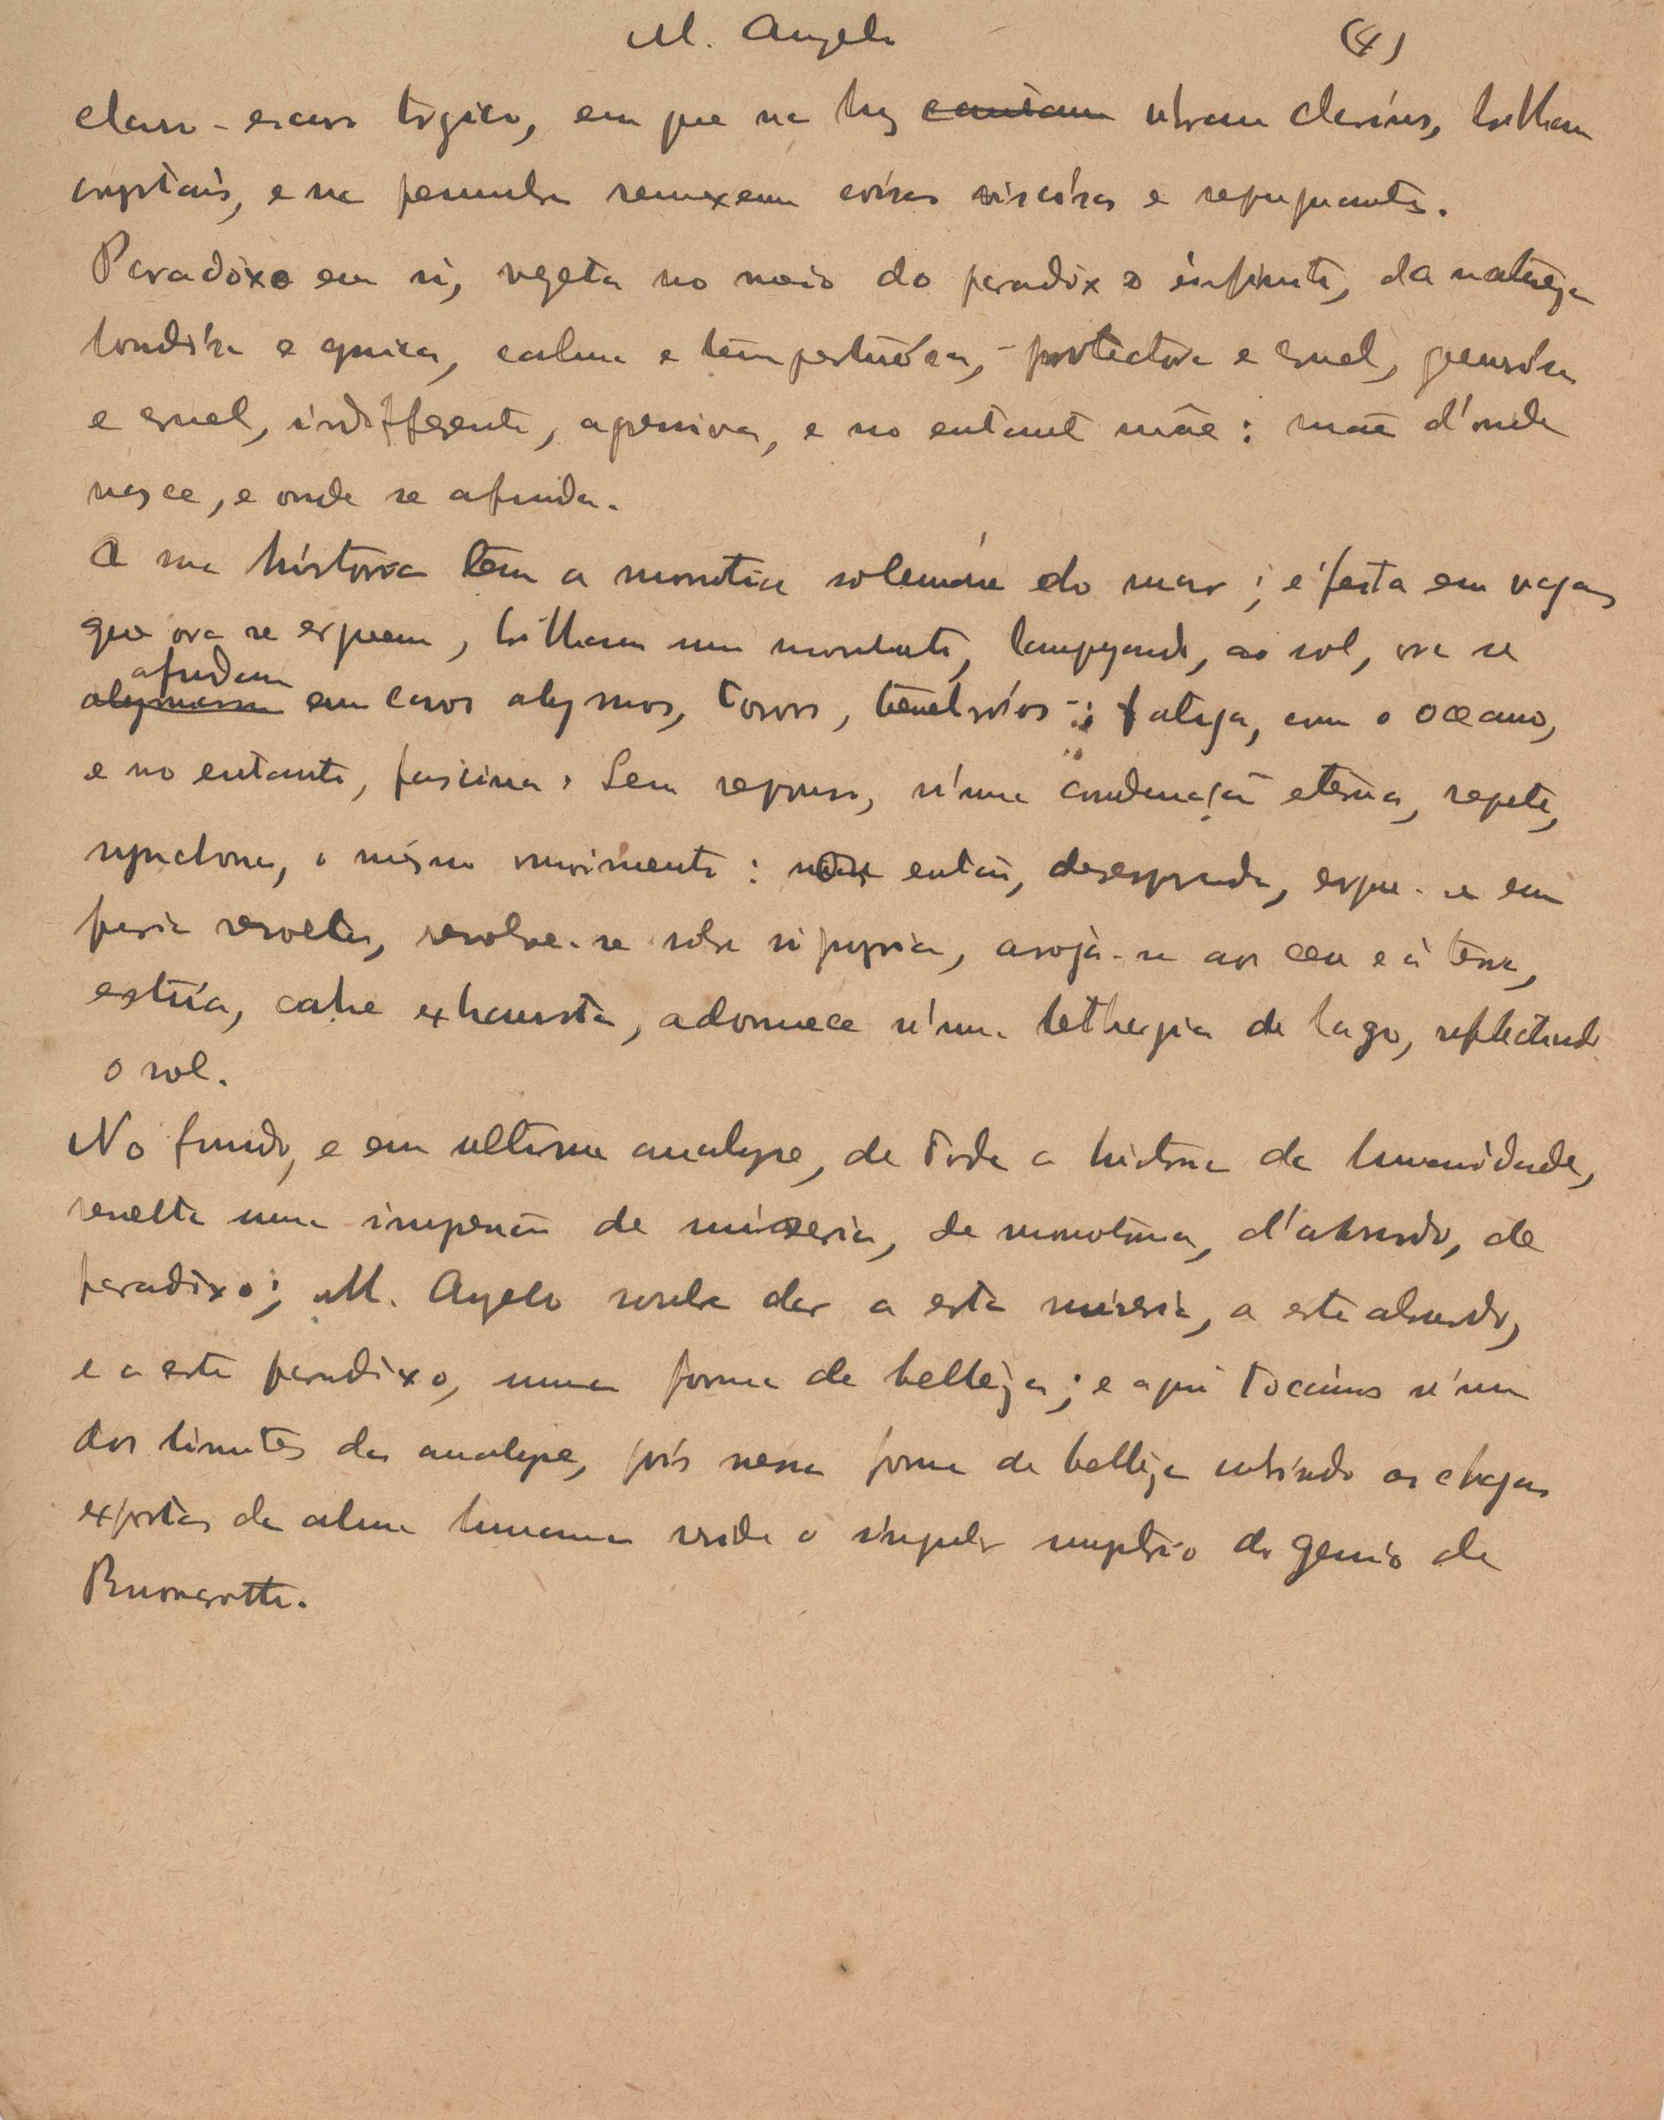 M. Angelo (4)
claro-escuro tragico, em que na luz cantam vibram clarins, brilham
crystais, e na penumbra remexem coisas viscósas e repugnantes.
Paradoxo em si, vegeta no meio do paradoxo infinito, da natureza
bondósa e cynica, calma e tempestuósa, - protectora e cruel, generósa
e cruel, indifferente, apressiva, e no entanto mãe: mãe d'onde
nasce, e onde se afunda.
A sua história tem a monotonia solemne do mar; é feita em vagas
que ora se erguem, brilham um momento, lampejando, ao sol, ora se
afundam
abysmam em cavos abysmos, torvos, tenebrósos; fatiga, como o oceano,
e no entanto, fascina. Sem repouso, n'uma condenação eterna, repete,
o mesmo movimento: então, desesperada, ergue-se em
furia revolta, revolve-se sobre si propria, arroja-se aos ceus e á terra,
estúa, cahe exhausta, adormece n'uma lethargia de lago, reflectindo
o sol.
No fundo, e em ultima analyse, de toda a historia da humanidade,
resulta uma impressão de miseria, de monotonia, d'absurdo, de
paradoxo; M. Angelo soube dar a esta miseria, a este absurdo,
e a este paradoxo, uma forma de belleza; e aqui tocámos n'um
dos limites da analyse, pois nessa forma de belleza cobrindo as chagas
expostas da alma humana reside o singular mysterio do genio de
Buonarotti.